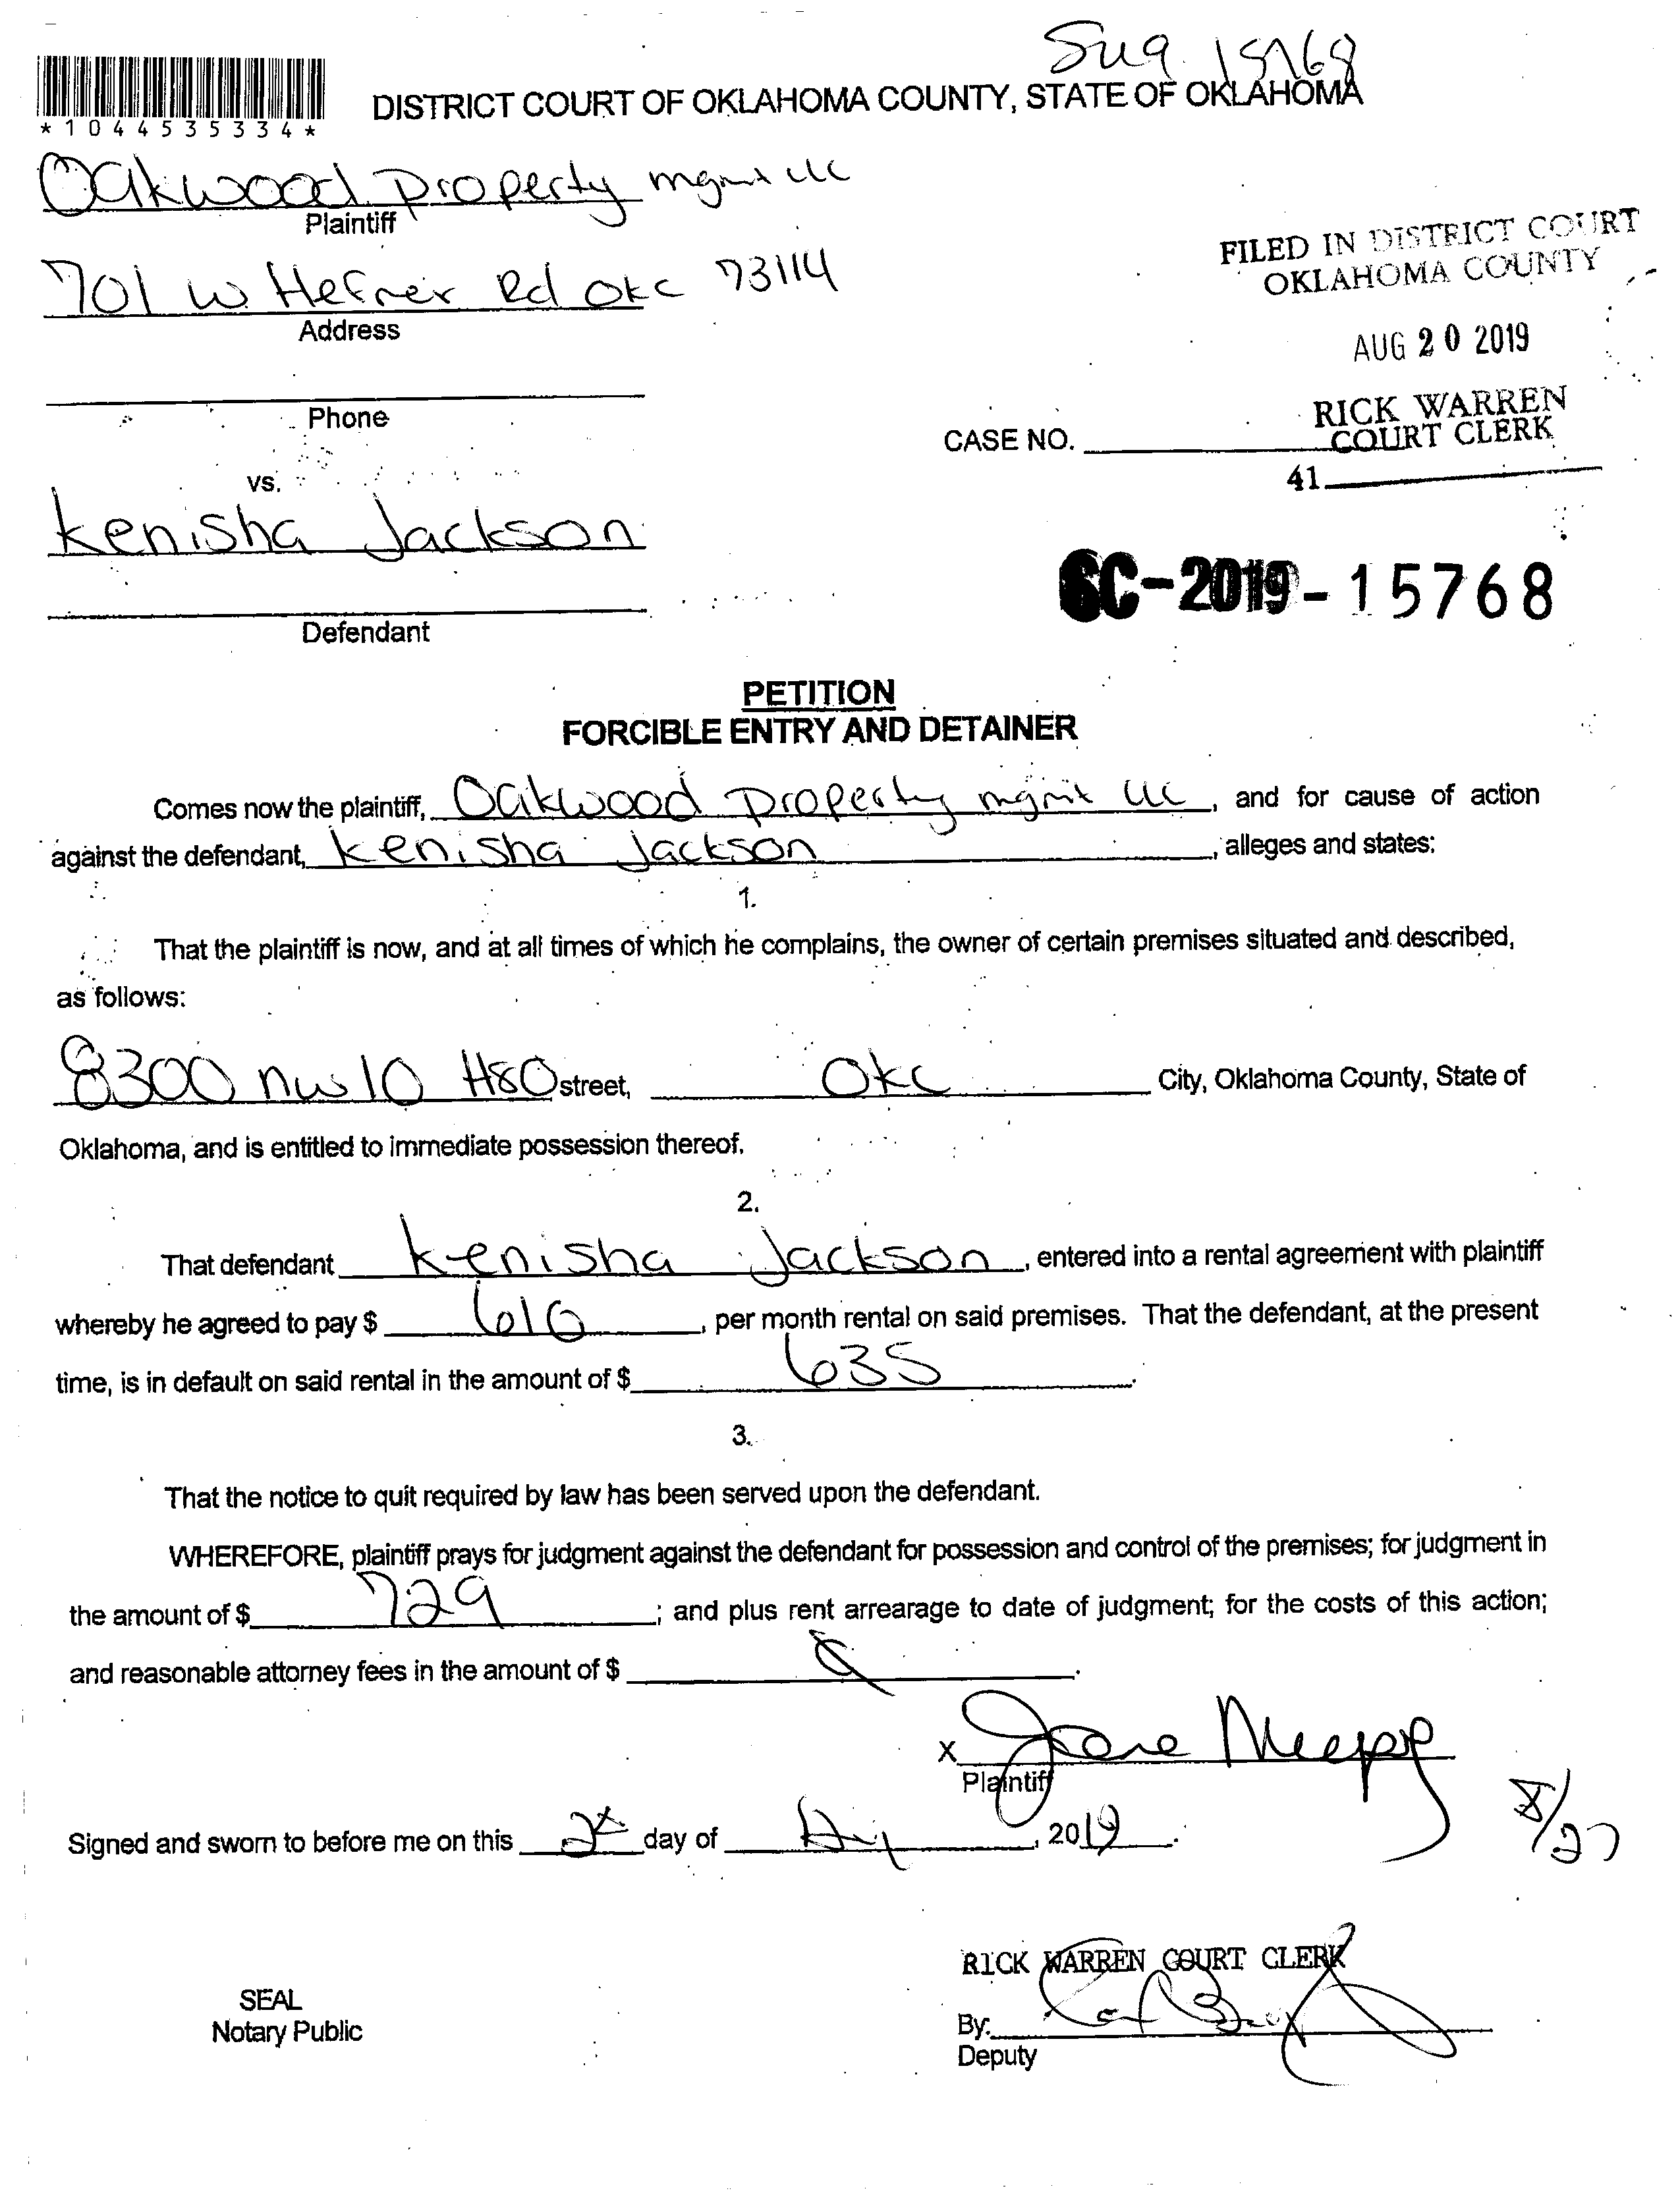 Sug 15768
*1044535334*
DISTRICT COURT OF OKLAHOMA COUNTY, STATE OF OKLAHOMA
Oakwood Property mgmt llc
Plaintiff
701 W Hefner Rd OKC 73114
Address
Phone
vs.
Kenisha Jackson
Defendant
FILED IN DISTRICT COURT
OKLAHOMA COUNTY
AUG 20 2019
RICK WARREN
COURT CLERK
CASE NO.
41
SC-2019-15768
PETITION
FORCIBLE ENTRY AND DETAINER
Comes now the plaintiff, Oakwood Property mgmt LLC, and for cause of action
against the defendant, Kenisha Jackson, alleges and states:
1.
That the plaintiff is now, and at all times of which he complains, the owner of certain premises situated and described,
as follows:
8300 nw 10 #80 street, OKC City, Oklahoma County, State of
Oklahoma, and is entitled to immediate possession thereof.
2.
That defendant Kenisha Jackson, entered into a rental agreement with plaintiff
whereby he agreed to pay $ 610, per month rental on said premises. That the defendant, at the present
time, is in default on said rental in the amount of $ 635.
3.
That the notice to quit required by law has been served upon the defendant.
WHEREFORE, plaintiff prays for judgment against the defendant for possession and control of the premises; for judgment in
the amount of $ 729; and plus rent arrearage to date of judgment; for the costs of this action;
and reasonable attorney fees in the amount of $
X
Plaintiff
Signed and sworn to before me on this day of Aug, 2019.
8/27
RICK WARREN COURT CLERK
SEAL
Notary Public
By:
Deputy